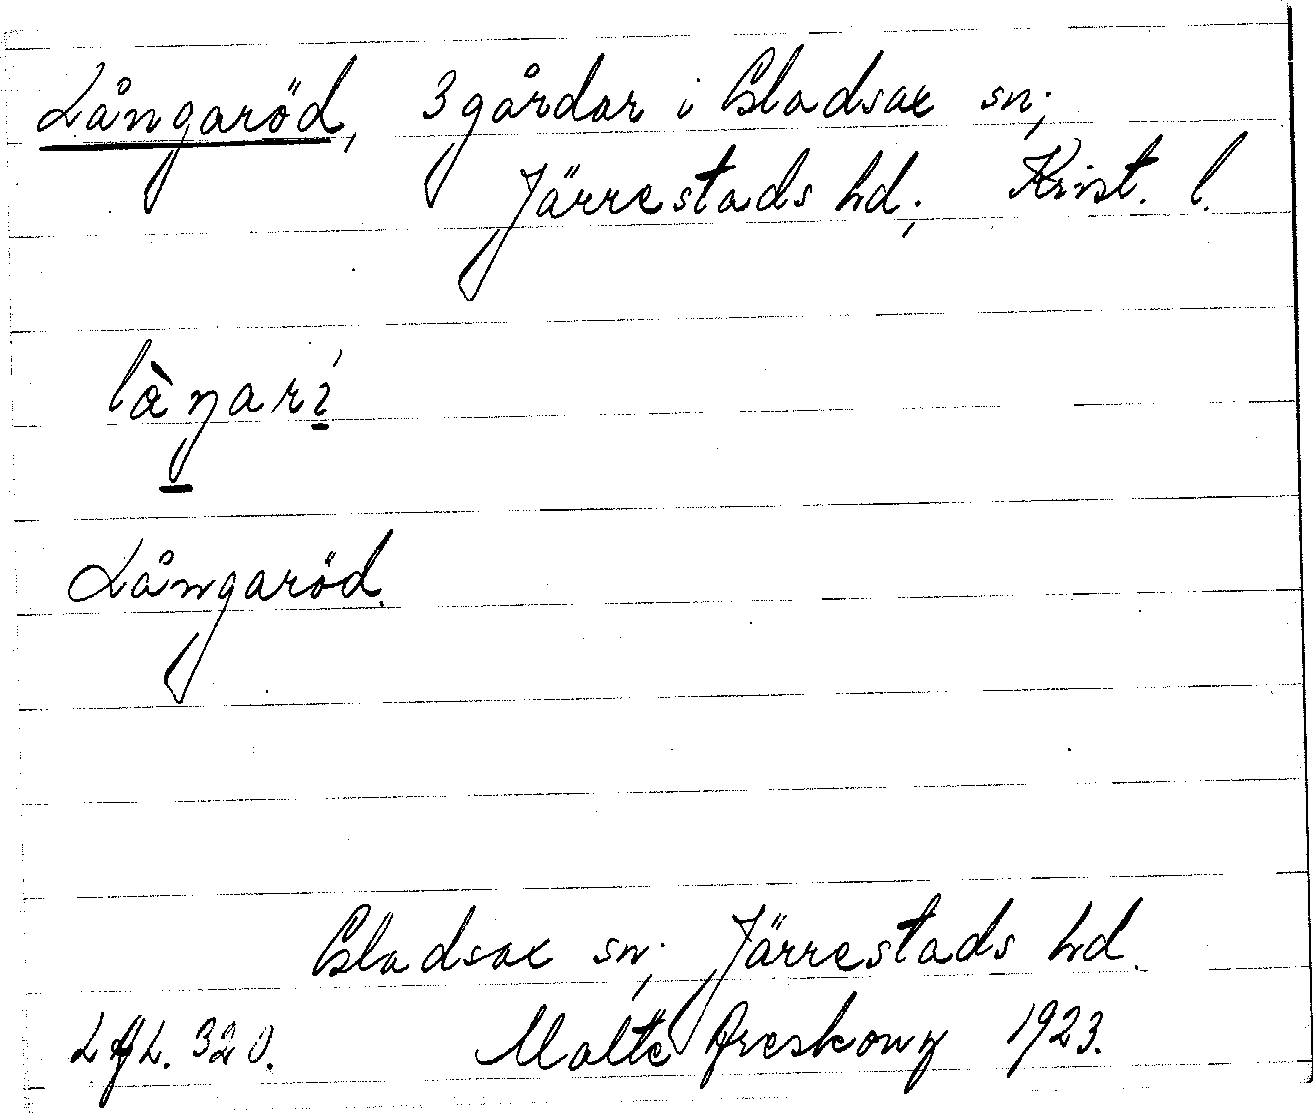 Långaröd, 3 gårdar i Gladsax sn;
Järrestads hd; Krist. l.
làŋarí
Långaröd.
Gladsax sn; Järrestads hd.
320. Malte 1923.